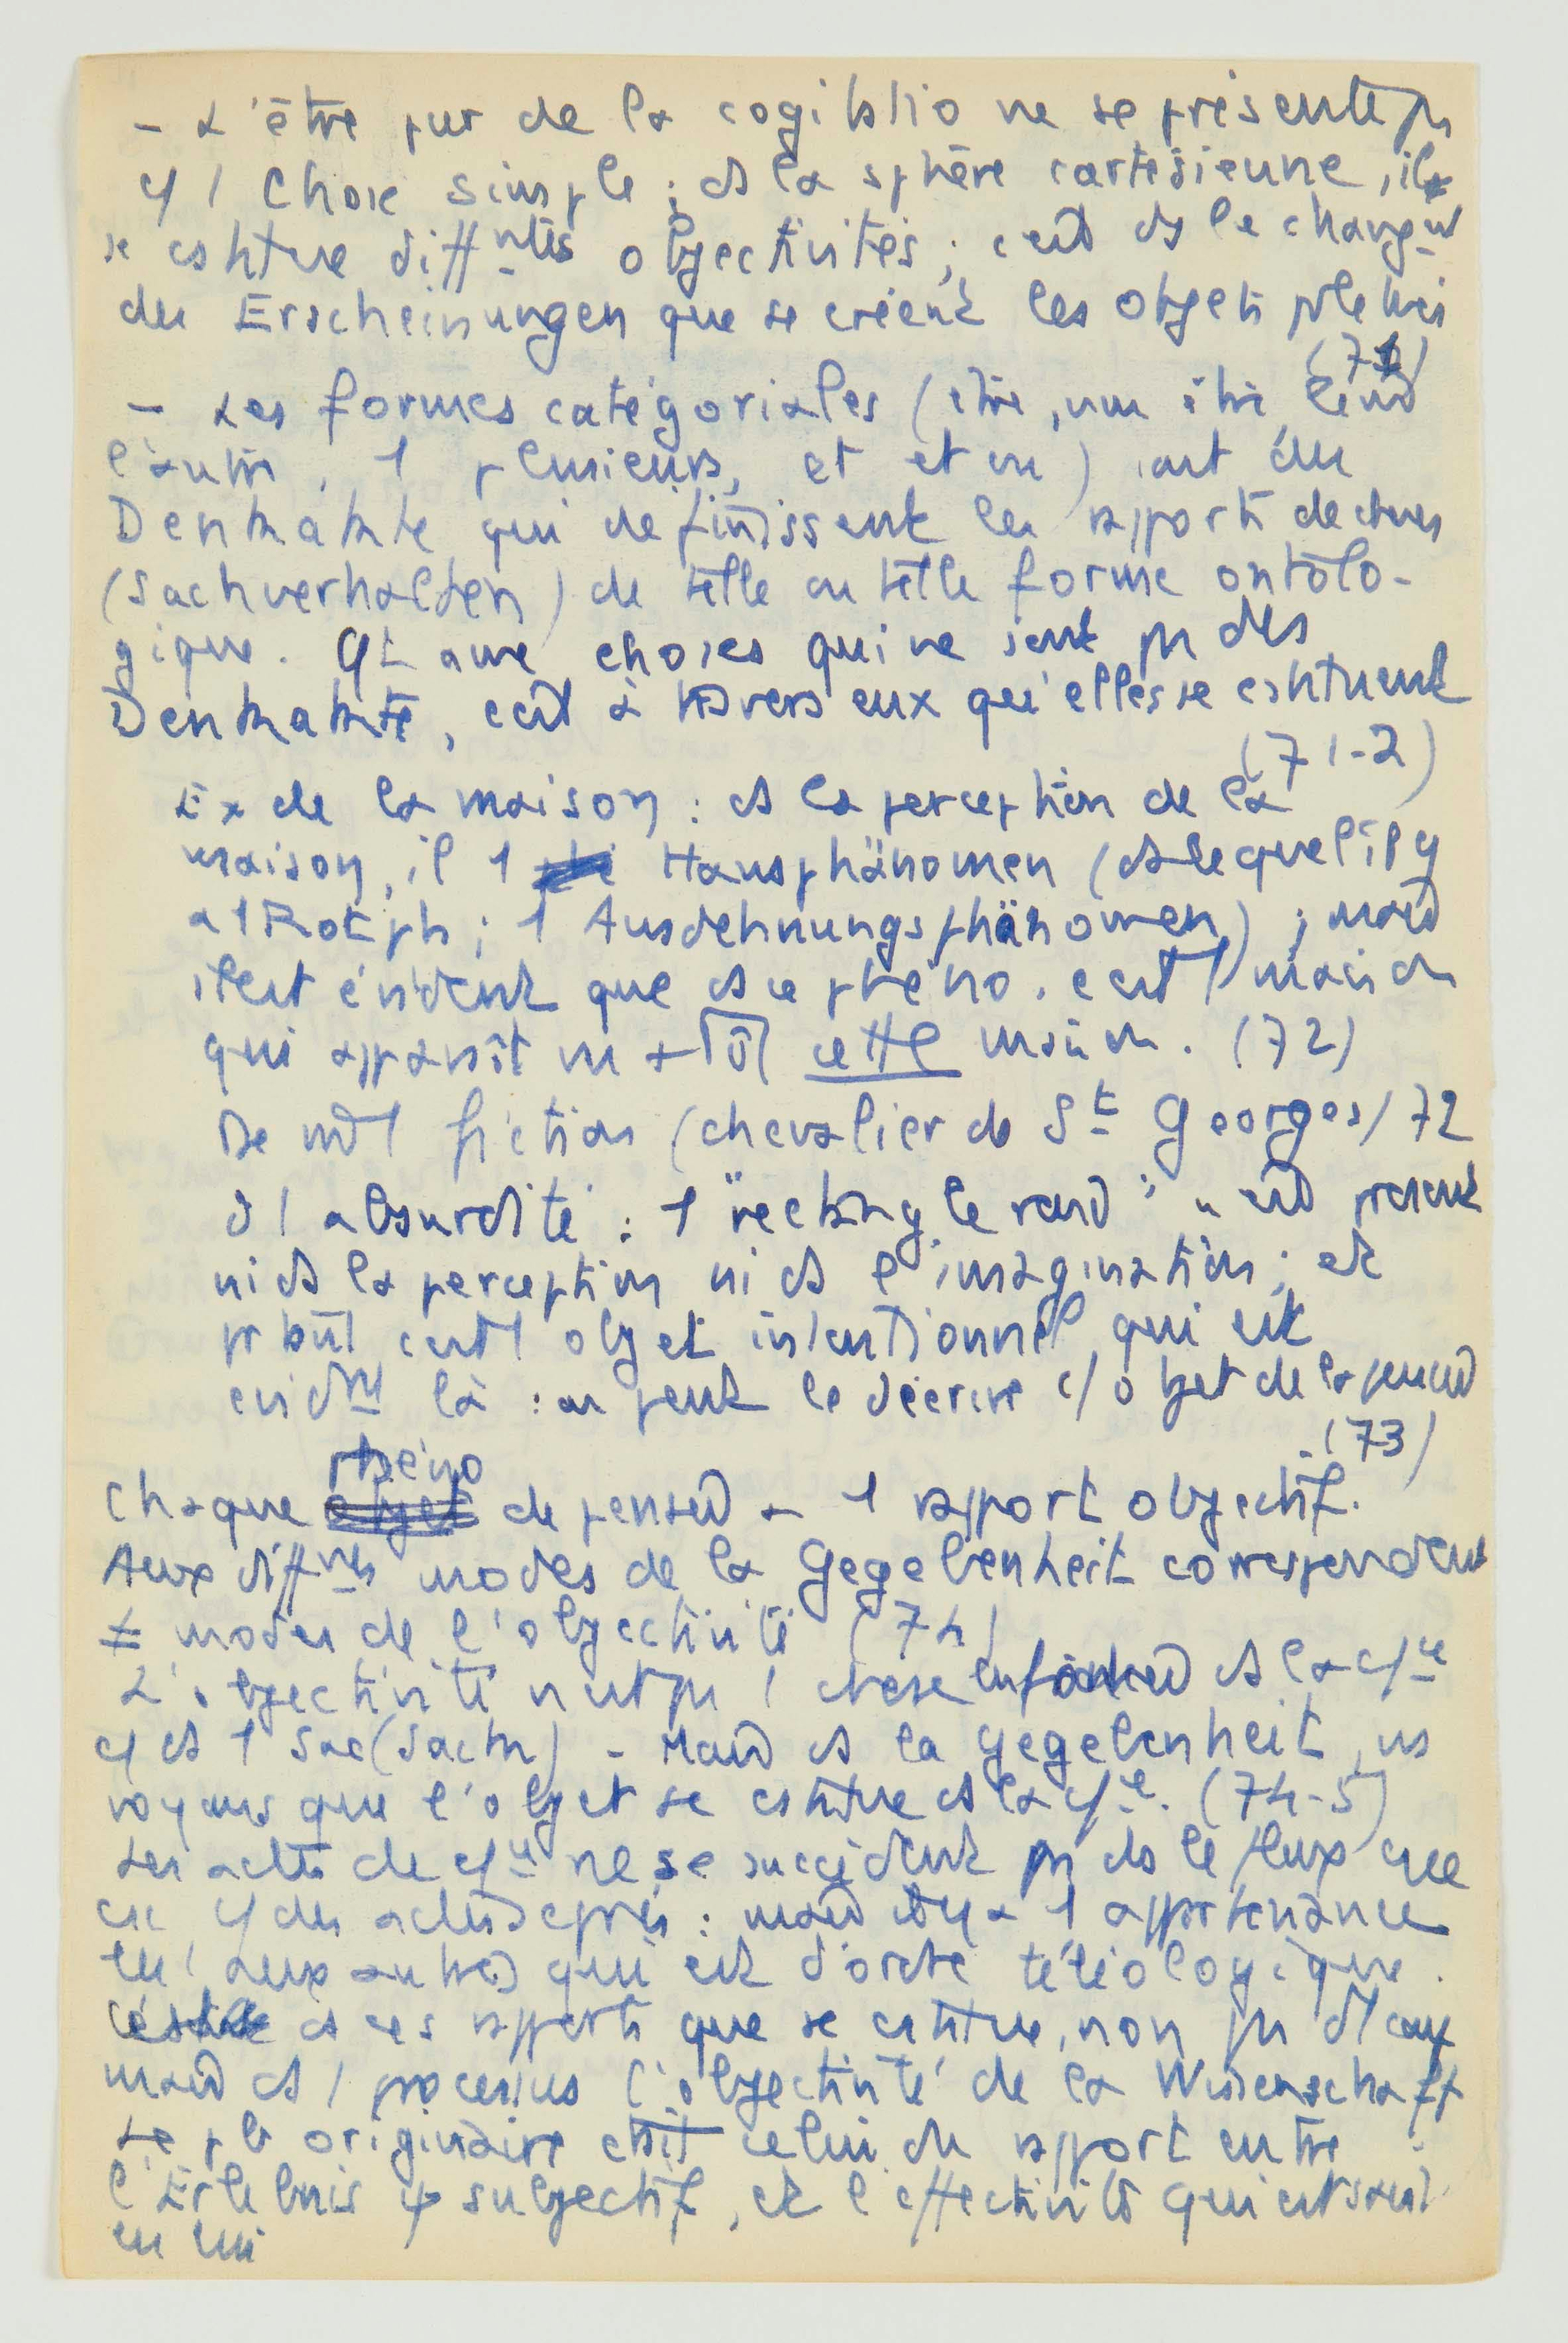 - L'être pur de la cogitatio ne se présente pas
c/ 1 chose simple ; ds la sphère cartésienne, il
se cstitue diff^ntes objectivités ; c'est ds le chang^nt
des Erscheinungen que se créent les objets
(71)
- Les formes catégoriales (être, non être, l'un
l'autre, 1 plusieurs, et et ou) sont des
Denkakte qui définissent les rapports de choses
(Sachverhalten) de telle ou telle forme ontolo-
gique. Qt aux choses qui ne sont pas des
Denkakte, c'est à travers eux qu'elles se cstituent
(71-2)
Ex de la maison : ds la perception de la
maison, il 1 Hausphänomen (ds lequel il y
a 1 Rotph ; 1 Ausdehnungsphänomen) ; mais
il est évident que ds ce phéno. c'est 1 maison
qui apparaît cette maison. (72)
De 1 fiction (chevalier de St Georges) 72
d'1 absurdité : 1 "rectangle rond" n'est présent
ni ds la perception ni ds l'imagination ; et
pr tant c'est 1 objet intentionnel qui est
evid^mt là : on peut le décrire c/ objet de la pensée
(73)
Chaque phéno de pensée a 1 rapport objectif.
Aux diff^nts modes de la Gegebenheit correspondent
≠ modes de l'objectivité (74)
L'objectivité n'est pas 1 chose ds la c/ce
c/ ds 1 sac (Sache) - Mais ds la Gegebenheit, ns
voyons que l'objet se cstitue ds la c/ce. (74-5)
Les actes de c/ce ne se succèdent pas ds le flux
c/ des actes : mais il y a 1 appartenance
les 1 aux autres qui est d'ordre téléologique.
C'est ds ces rapports que se cstitue, non pas d'1 coup
mais ds 1 processus l'objectivité de la Wissenschaft
Le pb originaire était celui du rapport entre
l'Erlebnis subjectif, et l'effectivité qui est saisie
en lui